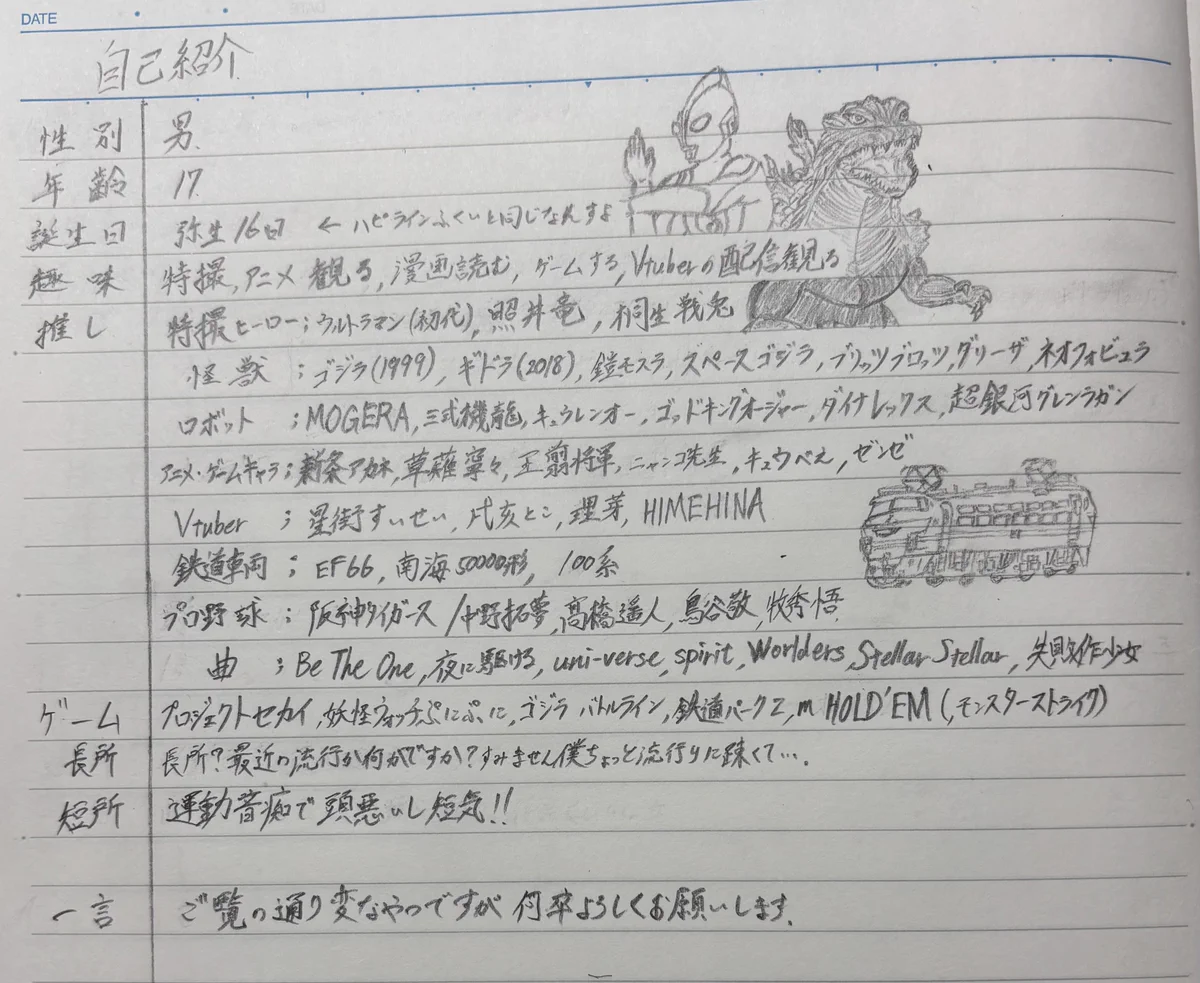 DATE
自己紹介
性別 男.
年齢 17.
誕生日 弥生16日 ← ハピラインふくいと同じなんすよ
趣味 特撮,アニメ観る,漫画読む,ゲームする,Vtuberの配信観る
推し 特撮ヒーロー;ウルトラマン(初代),照井竜,桐生戦兎
怪獣;ゴジラ(1999),ギドラ(2018),鎧モスラ,スペースゴジラ,ブリッツブロッツ,グリーザ,ネオフォビュラ
ロボット;MOGERA,三式機龍,キュウレンオー,ゴッドキングオージャー,ダイナレックス,超銀河グレンラガン
アニメ・ゲームキャラ;新条アカネ,草薙寧々,王翦将軍,ニャンコ先生,キュウべえ,ゼンゼ
Vtuber;星街すいせい,戌亥とこ,理芽,HIMEHINA
鉄道車両;EF66,南海50000形,100系
プロ野球;阪神タイガース/中野拓夢,髙橋遥人,鳥谷敬,牧秀悟
曲;Be The One,夜に駆ける,uni-verse,spirit,Worlders,Stellar Stellar,失敗作少女
ゲーム プロジェクトセカイ,妖怪ウォッチぷにぷに,ゴジラ バトルライン,鉄道パークZ,m HOLD'EM(,モンスターストライク)
長所 長所?最近の流行か何かですか?すみません僕ちょっと流行りに疎くて….
短所 運動音痴で頭悪いし短気!!
一言 ご覧の通り変なやつですが何卒よろしくお願いします.